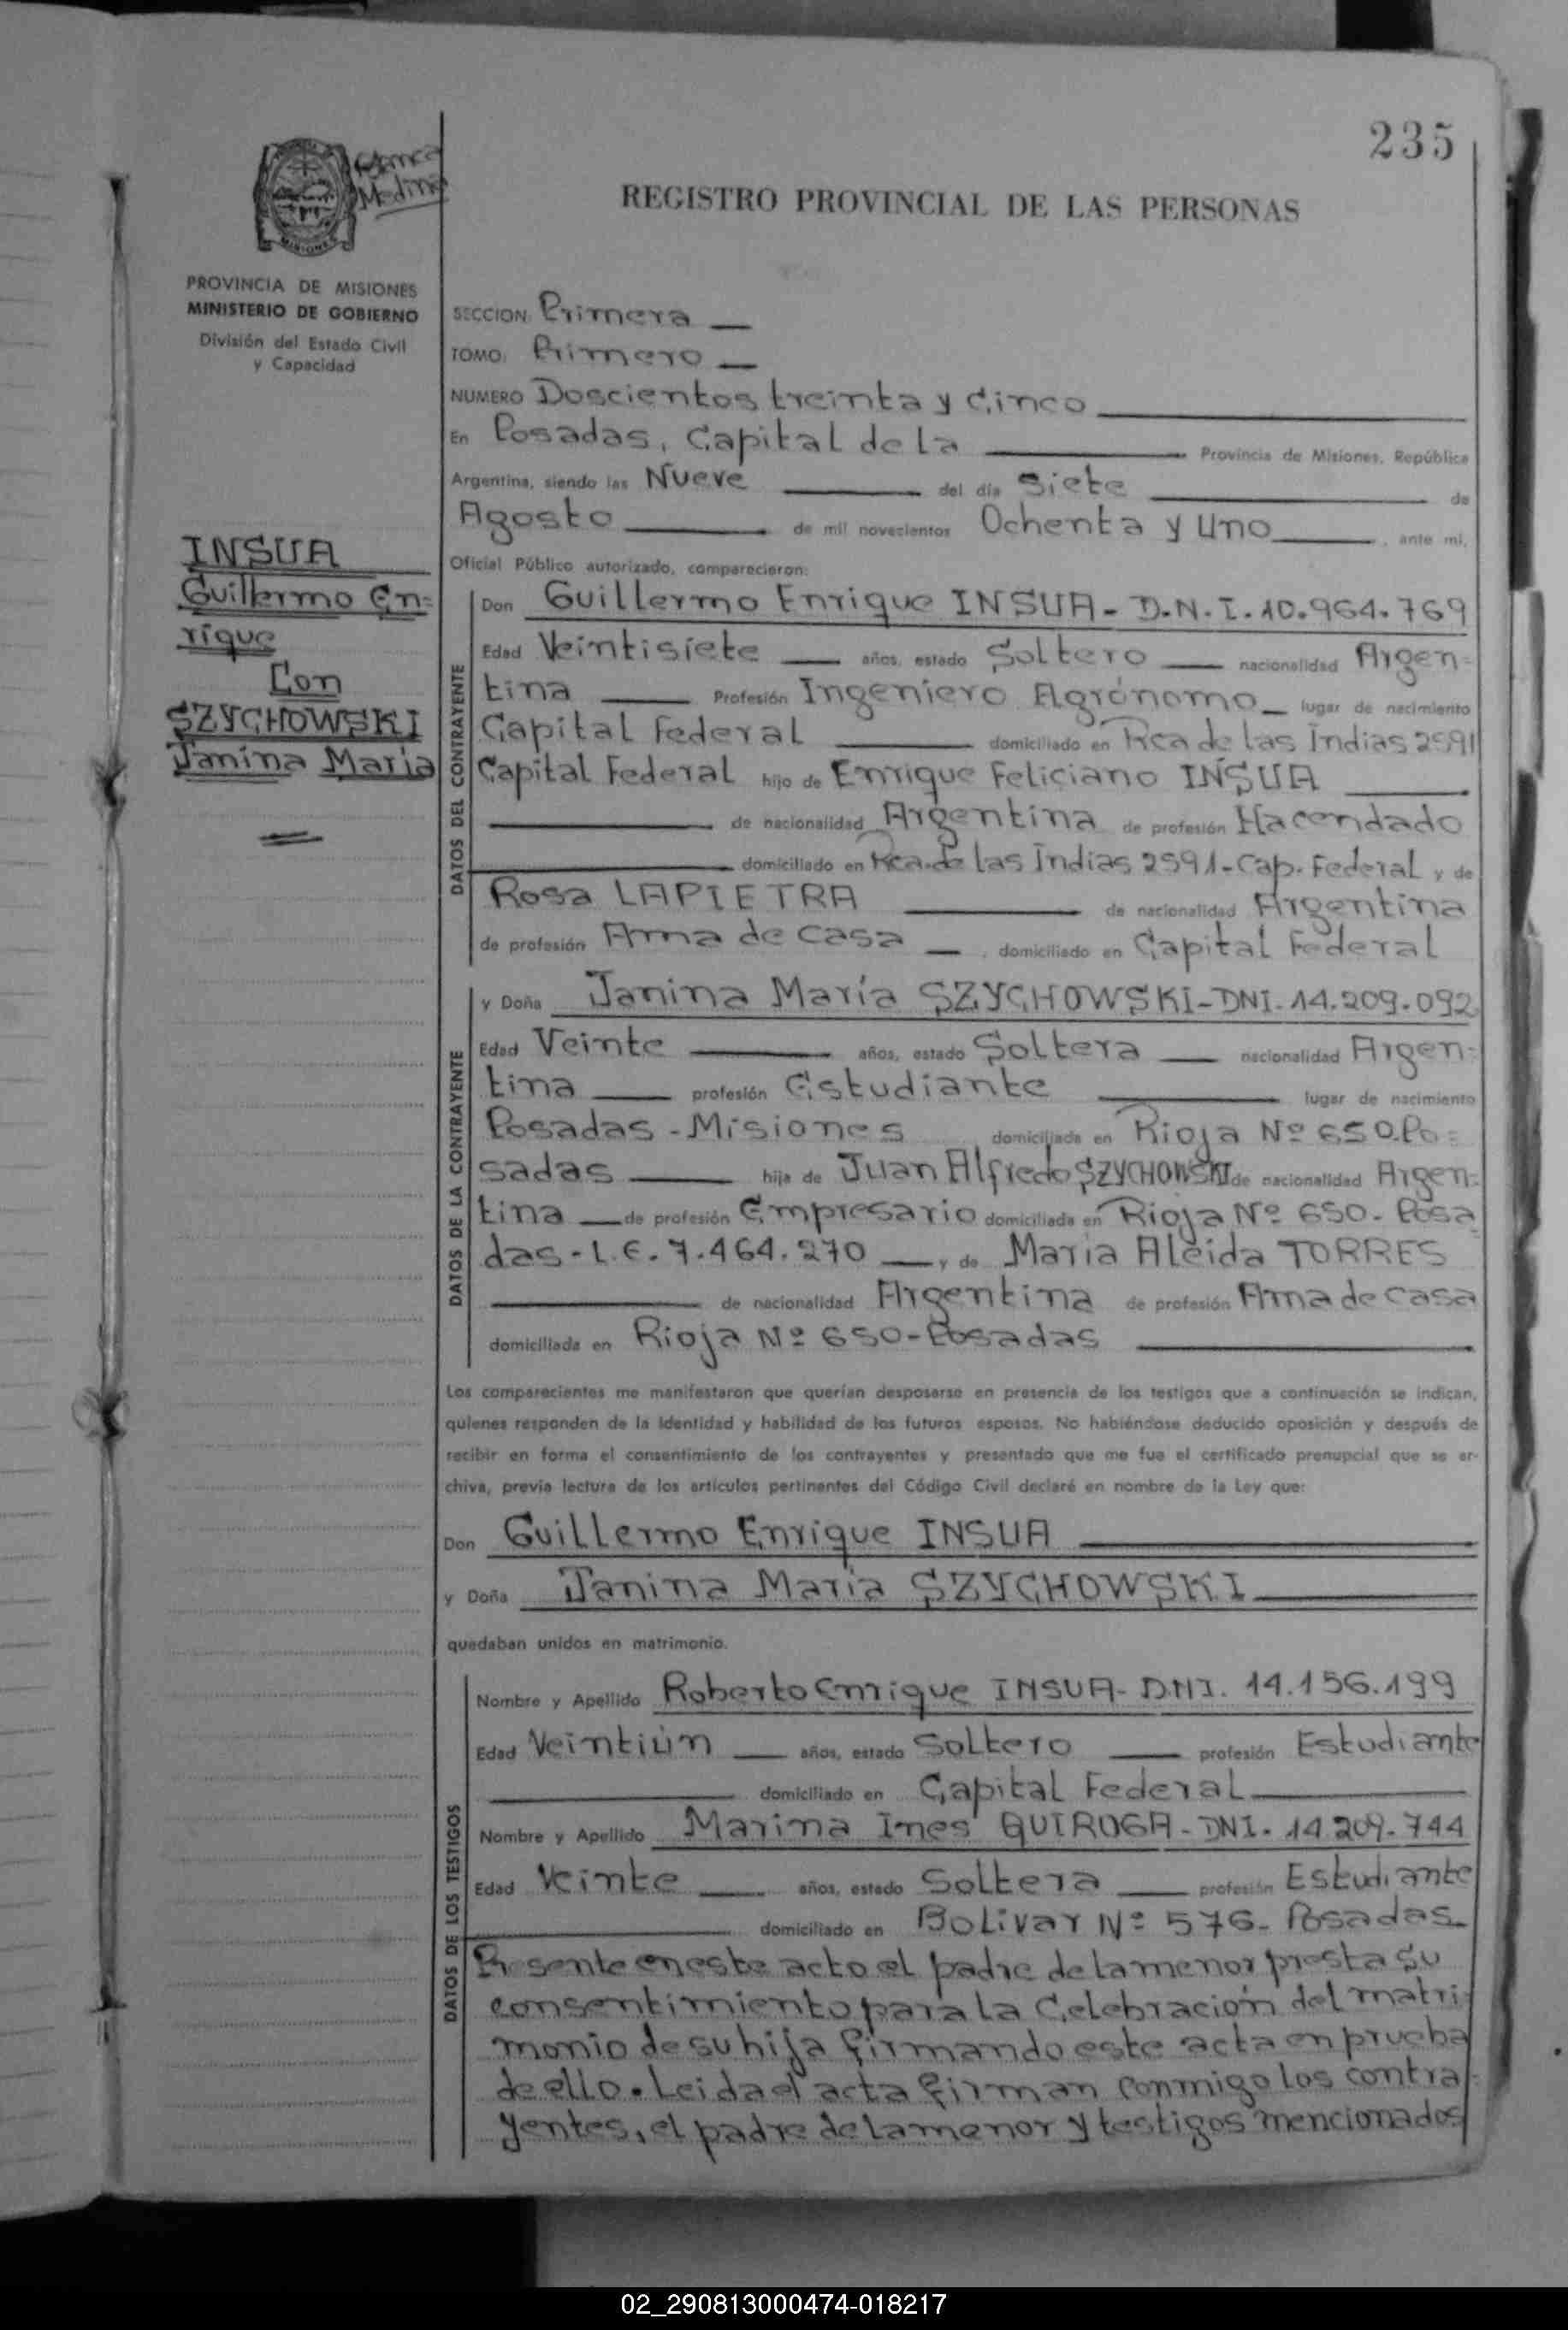 235
Blanca
Medina
MISIONES
REGISTRO PROVINCIAL DE LAS PERSONAS
PROVINCIA DE MISIONES
MINISTERIO DE GOBIERNO
División del Estado Civil
y Capacidad
INSUA
Guillermo En=
rique
Con
SZYCHOWSKI
Janina María
SECCION: Primera
TOMO: Primero
NUMERO Doscientos treinta y Cinco
En Posadas, Capital de la Provincia de Misiones, República
Argentina, siendo las Nueve del día Siete de
Agosto de mil novecientos Ochenta y Uno, ante mí,
Oficial Público autorizado, comparecieron:
DATOS DEL CONTRAYENTE
Don Guillermo Enrique INSUA - D.N.I. 10.964.769
Edad Veintisiete años, estado Soltero nacionalidad Argen=
tina Profesión Ingeniero Agrónomo lugar de nacimiento
Capital Federal domiciliado en Rca de las Indias 2591
Capital Federal hijo de Enrique Feliciano INSUA
de nacionalidad Argentina de profesión Hacendado
domiciliado en Rca. de las Indias 2591 - Cap. Federal y de
Rosa LAPIETRA de nacionalidad Argentina
de profesión Ama de casa, domiciliado en Capital Federal
DATOS DE LA CONTRAYENTE
y Doña Janina María SZYCHOWSKI - DNI. 14.209.092
Edad Veinte años, estado Soltera nacionalidad Argen=
tina profesión Estudiante lugar de nacimiento
Posadas - Misiones domiciliada en Rioja Nº 650. Po=
sadas hija de Juan Alfredo SZYCHOWSKI de nacionalidad Argen=
tina de profesión Empresario domiciliado en Rioja Nº 650 - Posa
das - L.E. 7.464.270 y de Maria Aleida TORRES
de nacionalidad Argentina de profesión Ama de casa
domiciliada en Rioja Nº 650 - Posadas
Los comparecientes me manifestaron que querían desposarse en presencia de los testigos que a continuación se indican,
quienes responden de la identidad y habilidad de los futuros esposos. No habiéndose deducido oposición y después de
recibir en forma el consentimiento de los contrayentes y presentado que me fue el certificado prenupcial que se ar-
chiva, previa lectura de los artículos pertinentes del Código Civil declaré en nombre de la Ley que:
Don Guillermo Enrique INSUA
y Doña Janina Maria SZYCHOWSKI
quedaban unidos en matrimonio.
DATOS DE LOS TESTIGOS
Nombre y Apellido Roberto Enrique INSUA - DNI. 14.156.199
Edad Veintiún años, estado Soltero profesión Estudiante
domiciliado en Capital Federal
Nombre y Apellido Marina Ines QUIROGA - DNI. 14.209.744
Edad Veinte años, estado Soltera profesión Estudiante
domiciliado en Bolivar Nº 576 - Posadas
Presente en este acto el padre de la menor presta su
consentimiento para la Celebración del matri=
monio de su hija firmando este acta en prueba
de ello. Leida el acta firman conmigo los contra=
yentes, el padre de la menor y testigos mencionados
02_290813000474-018217